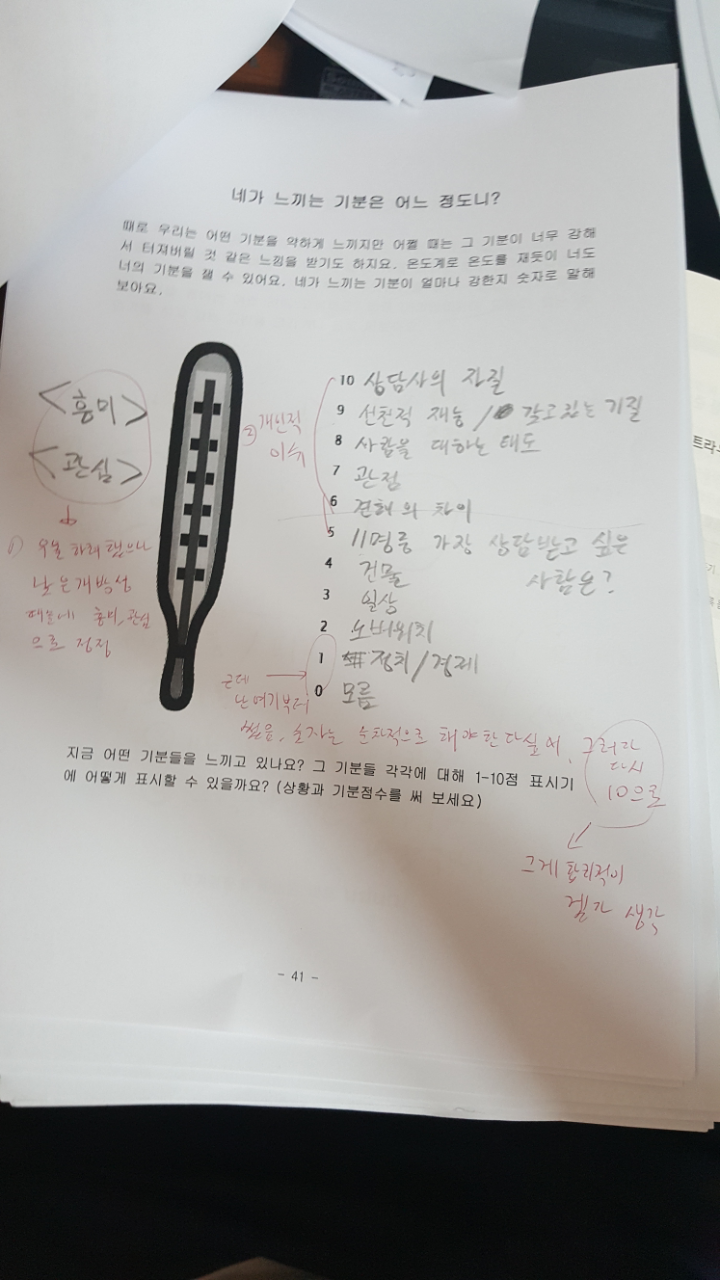 네가 느끼는 기분은 어느 정도니?
때로 우리는 어떤 기분을 약하게 느끼지만 어쩔 때는 그 기분이 너무 강해
서 터져버릴 것 같은 느낌을 받기도 하지요. 온도계로 온도를 재듯이 너도
너의 기분을 잴 수 있어요. 네가 느끼는 기분이 얼마나 강한지 숫자로 말해
보아요.
<흥미>
<관심>
1) 하려 했으나
낮은 개방성
때문에 흥미, 관심
으로 정정
2) 개인적
이슈
10 상담사의 자질
9 선천적 재능 / 갖고있는 기질
8 사람을 대하는 태도
7 관점
6 견해의 차이
5 11명중 가장 상담받고 싶은
사람은?
4 건물
3 일상
2
1 정치/경제
0 모름
근데
난 여기부터
썼음. 숫자는 순차적으로 해야한다 싶어. 그러다
다시
10으로
그게 합리적이
생각
지금 어떤 기분들을 느끼고 있나요? 그 기분들 각각에 대해 1-10점 표시기
에 어떻게 표시할 수 있을까요? (상황과 기분점수를 써 보세요)
- 41 -
트라우